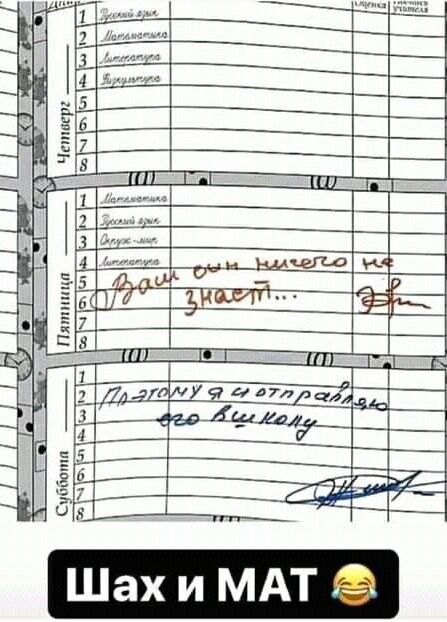 Оценка
Четверг
1 Русский язык
2 Математика
3 Литература
4 Физкультура
5
6
7
8
Пятница
1 Математика
2 Русский язык
3 Окруж-мир
4 Литература
5
6
7
8
Ваш сын ничего не
знает...
Суббота
1
2
3
4
5
6
7
8
Поэтому я и отправляю
его в школу
Шах и МАТ 😂